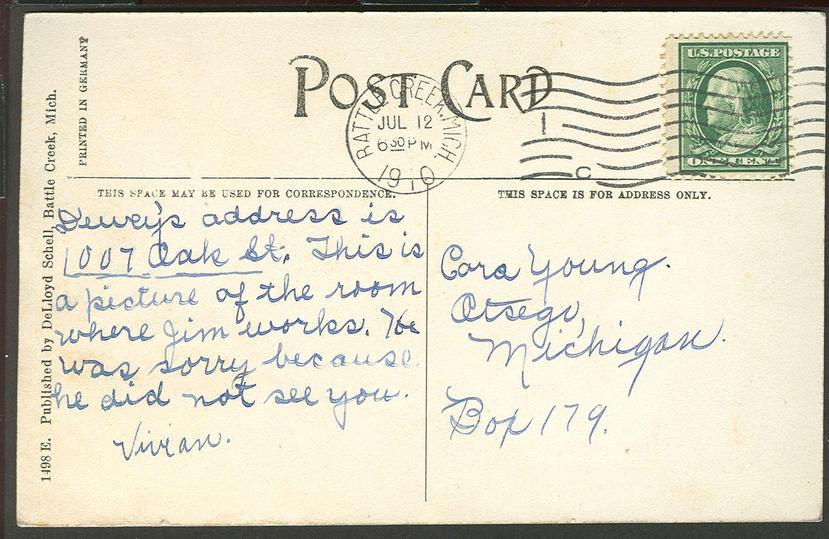 POST CARD
BATTLE CREEK, MICH.
JUL 12
6 30 PM
1910
U.S. POSTAGE
ONE CENT
PRINTED IN GERMANY
1498 E. Published by DeLloyd Schell, Battle Creek, Mich.
THIS SPACE MAY BE USED FOR CORRESPONDENCE.
Dewey's address is
1007 Oak St. This is
a picture of the room
where Jim works. He
was sorry because
he did not see you.
Vivian.
THIS SPACE IS FOR ADDRESS ONLY.
Cora Young.
Otsego,
Michigan.
Box 179.
1
C